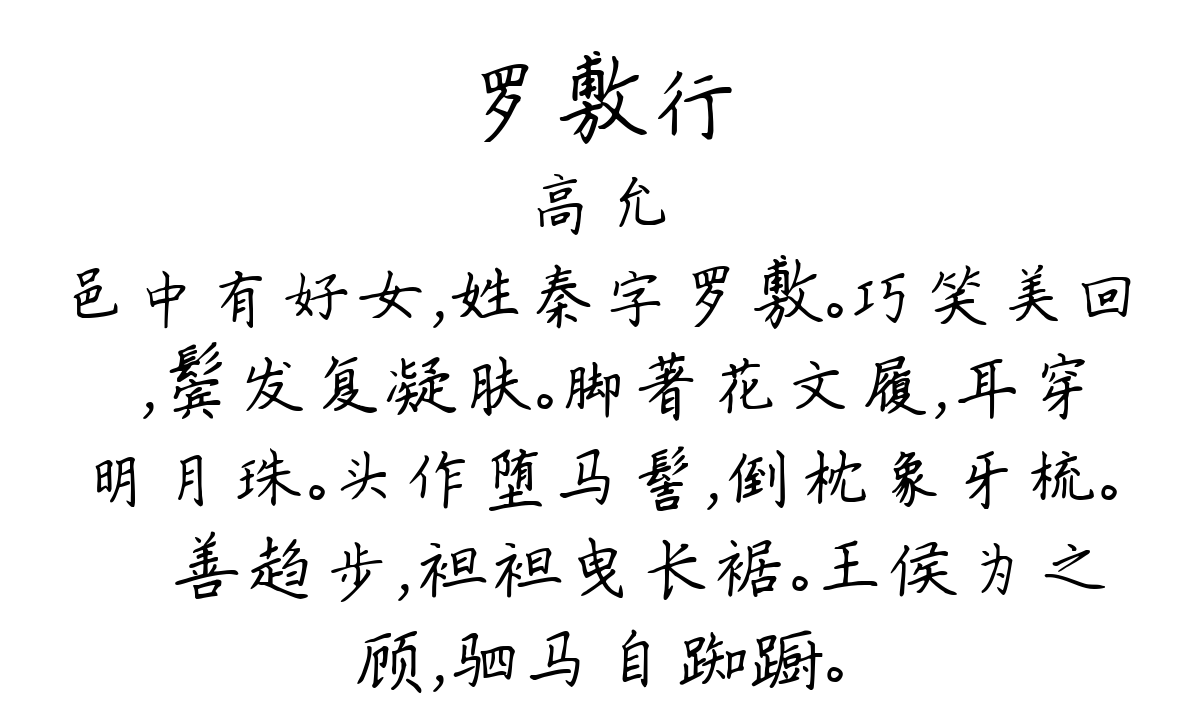 罗敷行
高允
邑中有好女,姓秦字罗敷。巧笑美回
,鬓发复凝肤。脚著花文履,耳穿
明月珠。头作堕马髻,倒枕象牙梳。
善趋步,袒袒曳长裾。王侯为之
顾,驷马自踟蹰。